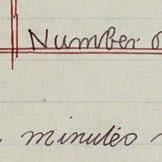 Number
minutes